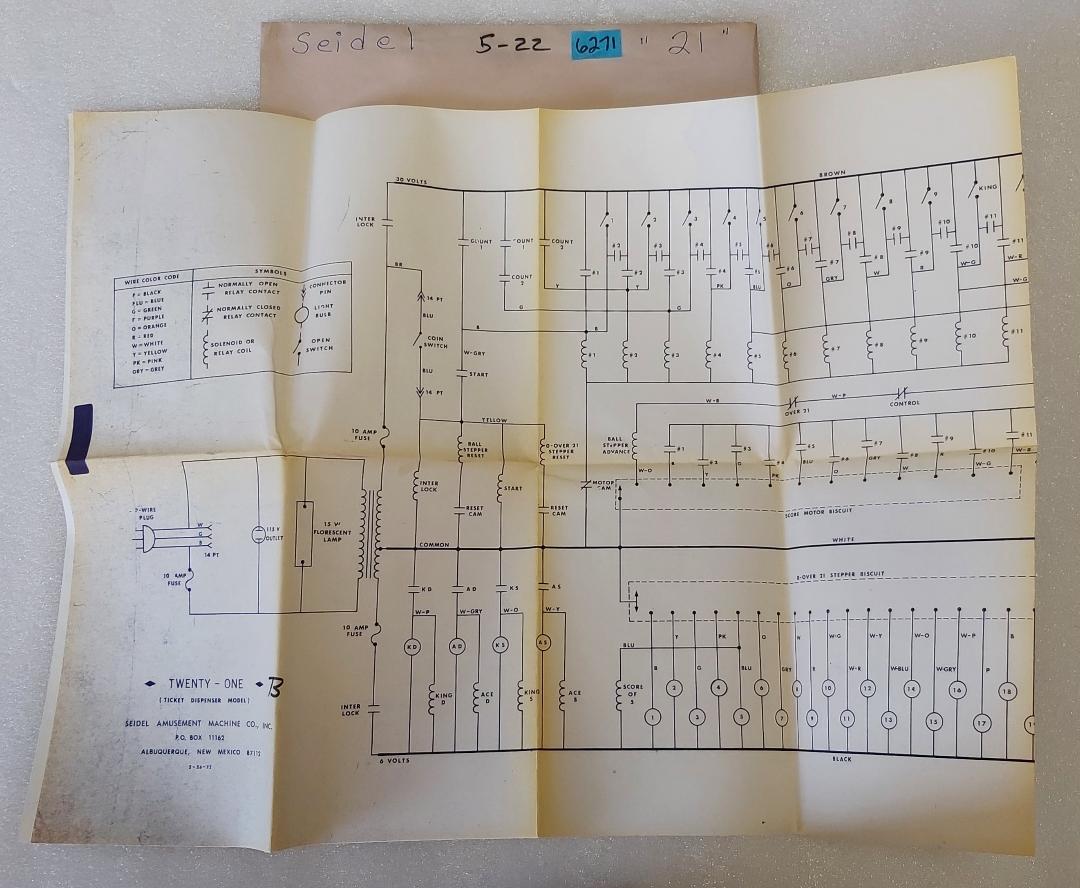 Seidel 5-22 6271 "21"
30 VOLTS
BROWN
INTER LOCK
COUNT 1
COUNT 1
COUNT 2
COUNT 2
1 2 3 4 5 6 7 8 9 KING
#2 #3 #4 #5 #6 #7 #8 #9 #10 #11
#1 #2 #3 #4 #5 #6 #7 #8 #9 #10 #11
BR
Y
G
B
B
PK
BLU
O
GRY
W
R
W-G
W-R
W-G
WIRE COLOR CODE
P = BLACK
BLU = BLUE
G = GREEN
P = PURPLE
O = ORANGE
R = RED
W = WHITE
Y = YELLOW
PK = PINK
GRY = GREY
SYMBOLS
NORMALLY OPEN RELAY CONTACT
CONNECTOR PIN
NORMALLY CLOSED RELAY CONTACT
LIGHT BULB
SOLENOID OR RELAY COIL
OPEN SWITCH
14 PT
BLU
COIN SWITCH
BLU
14 PT
W-GRY
START
#1 #2 #3 #4 #5 #6 #7 #8 #9 #10 #11
W-B
OVER 21
W-P
CONTROL
YELLOW
10 AMP FUSE
BALL STEPPER RESET
0-OVER 21 STEPPER RESET
BALL STEPPER ADVANCE
#1 #2 #3 #4 #5 #6 #7 #8 #9 #10 #11
W-O
Y
BLU
O
GRY
W
W-G
PK
INTER LOCK
START
MOTOR CAM
RESET CAM
RESET CAM
SCORE MOTOR BISCUIT
WIRE PLUG
W
G
B
14 PT
10 AMP FUSE
115 V OUTLET
15 W FLORESCENT LAMP
COMMON
WHITE
0-OVER 21 STEPPER BISCUIT
KD AD KS AS
W-P W-GRY W-O W-Y
10 AMP FUSE
KD AD KS AS
KING D
ACE D
KING S
ACE S
BLU
SCORE OF 5
B Y G PK BLU O GRY W R W-G W-R W-Y W-BLU W-O W-GRY W-P P B
1 2 3 4 5 6 7 8 9 10 11 12 13 14 15 16 17 18
INTER LOCK
6 VOLTS
BLACK
TWENTY - ONE B
(TICKET DISPENSER MODEL)
SEIDEL AMUSEMENT MACHINE CO., INC.
P.O. BOX 11162
ALBUQUERQUE, NEW MEXICO 87112